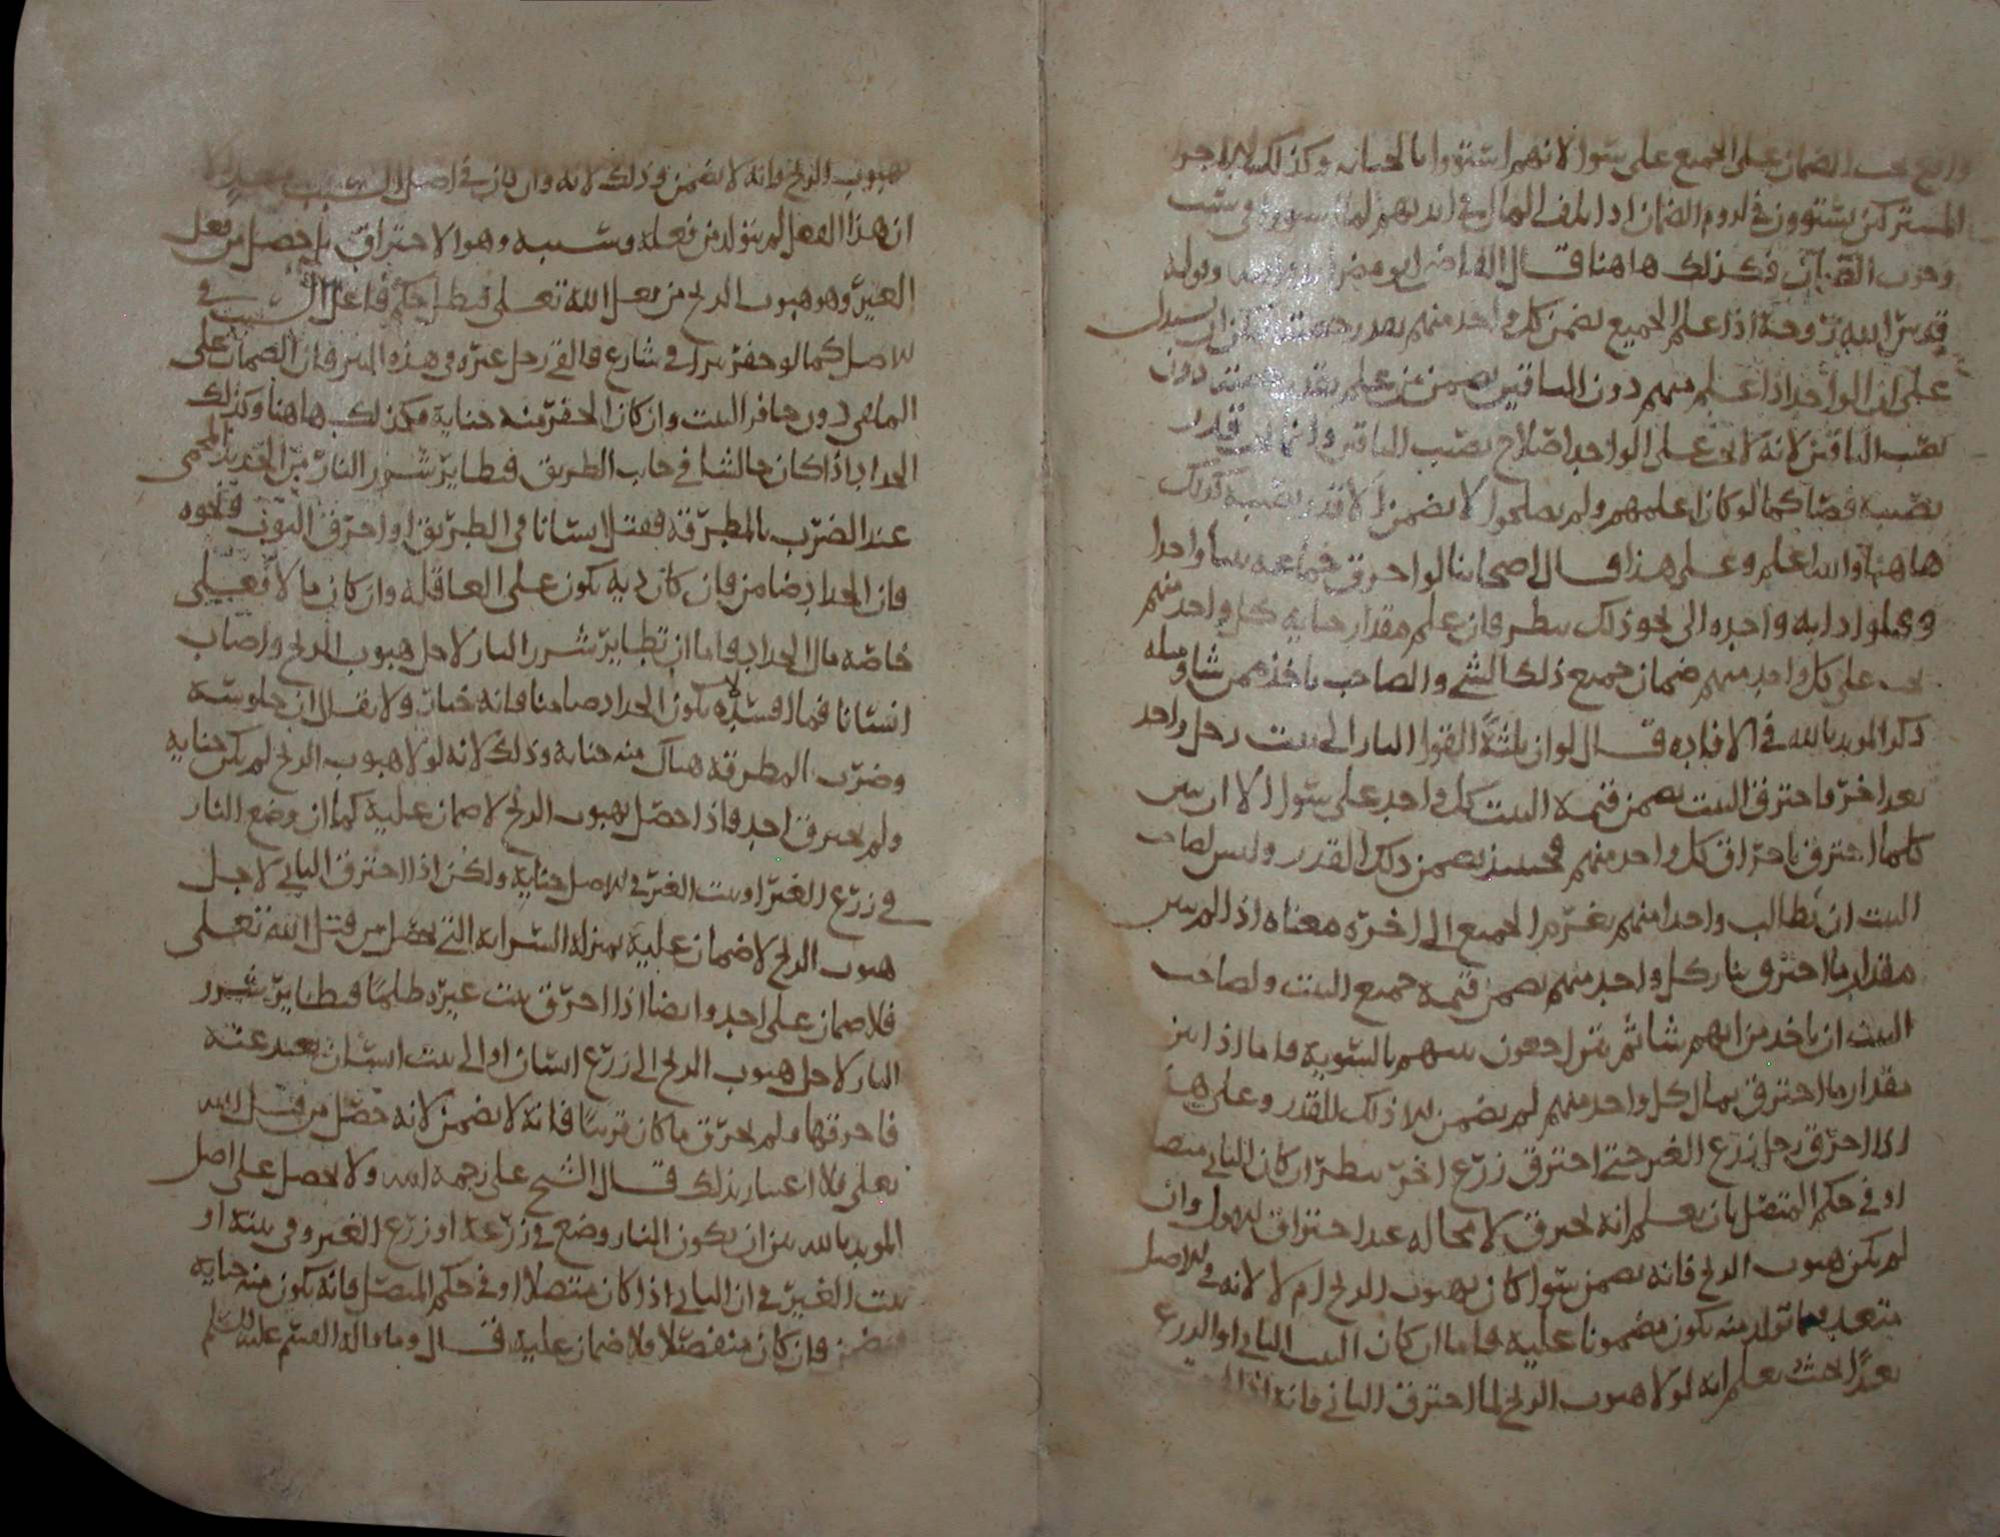 يجب الضمان على الجميع على سوا لانهم استووا بالجنايه وكذلك الاجرا
المشتركين يستوون في لزوم الضمان اذا تلف المال في ايديهم لما استووا في سبب
وجوب الضمان فكذلك هاهنا قال القاضي ابو مضر
قدس الله روحه اذا علم الجميع يضمن كل واحد منهم بقدر حصته
على ان الواحد اذا علم منهم دون الباقين يضمن من علم بقدر حصته دون
نصيب الباقين لانه لا يجب على الواحد اصلاح نصيب الباقين وانما
نصيبه فصار كما لو كان اعلمهم ولم يصلحوا لا يضمن الا قدر نصيبه كذلك
هاهنا والله اعلم وعلى هذا قال اصحابنا لو احرق جماعه بيتا واحدا
وقتلوا دابه واحده الى نحو ذلك ينظر فان علم مقدار جنايه كل واحد منهم
يجب على كل واحد منهم ضمان جميع ذلك الشي والصاحب ياخذ ممن شا ومثله
ذكر المويد بالله في الافاده قال لو ان ثلثة القوا النار الى بيت رجل واحد
بعد اخر فاحترق البيت يضمن قيمة البيت كل واحد على سوا الا ان يبين
كلما احترق باحراق كل واحد منهم فحينيذ يضمن ذلك القدر وليس لصاحب
البيت ان يطالب واحدا منهم بغرم الجميع الى اخره معناه اذا لم يبين
مقدار ما احترق بنار كل واحد منهم يضمن قيمة جميع البيت ولصاحب
البيت ان ياخذ من ايهم شا ثم يتراجعون بينهم بالسوية فاما اذا بين
مقدار ما احترق بمال كل واحد منهم لم يضمن الا ذلك القدر وعلى هذا
اذا احرق رجل زرع الغير حتى احترق زرع اخر ينظر ان كان الثاني متصلا
او في حكم المتصل بان يعلم انه يحترق لا محاله عند احتراق الاول وان
لم يكن هبوب الريح فانه يضمن سوا كان بهبوب الريح ام لا لانه في الاصل
متعد فما تولد منه يكون مضمونا عليه فاما ان كان البيت الثاني او الزرع
بعيدا بحيث يعلم انه لولا هبوب الريح لما احترق الثاني فانه اذا
بهبوب الريح فانه لا يضمن وذلك لانه وان كان في اصل السبب متعديا الا
ان هذا الفعل لم يتولد من فعله وسببه وهو الاحتراق بل حصل من فعل
الغير وهو هبوب الريح من فعل الله تعلى فبطل حكم فاعل السبب في
الاصل كما لو حفر بيرا في شارع فالقى رجل غيره في هذه البير فان الضمان على
الملقي دون حافر البير وان كان الحفر منه جناية فكذلك هاهنا وكذلك
الحداد اذا كان جالسا في جانب الطريق فتطاير شرر النار من الحديد المحمى
عند الضرب بالمطرقة فقتل انسانا في الطريق او احرق الثوب ونحوه
فان الحداد ضامن فان كان دية يكون على العاقلة وان كان مالا فعلى
خاصة مال الحداد فاما ان تطاير شرر النار لاجل هبوب الريح واصاب
انسانا فمال فسده لا يكون الحداد ضامنا فانه جبار ولا يقال ان جلوسه
وضرب المطرقة هناك منه جناية وذلك لانه لولا هبوب الريح لم يكن جناية
ولم يحترق احد فاذا حصل بهبوب الريح لا ضمان عليه كما ان وضع النار
في زرع الغير او بيت الغير في الاصل جناية ولكن اذا احترق الثاني لاجل
هبوب الريح لا ضمان عليه بمنزلة السراية التي تحصل من قبل الله تعلى
فلا ضمان على احد وايضا اذا احرق بيت غيره ظلما فتطاير شرر
النار لاجل هبوب الريح الى زرع انسان او الى بيت انسان بعيد عنه
فاحرقها ولم يحرق ما كان قريبا فانه لا يضمن لانه حصل من قبل الله
تعلى فلا اعتبار بذلك قال الشيخ على رحمه الله ولا يحصل على اصل
المويد بالله بين ان يكون النار وضع في زرعه او زرع الغير وفي بيته او
بيت الغير في ان الثاني اذا كان متصلا او في حكم المتصل فانه يكون منه جناية
ويضمن وان كان منفصلا فلا ضمان عليه قال وما قاله القسم عليه السلم